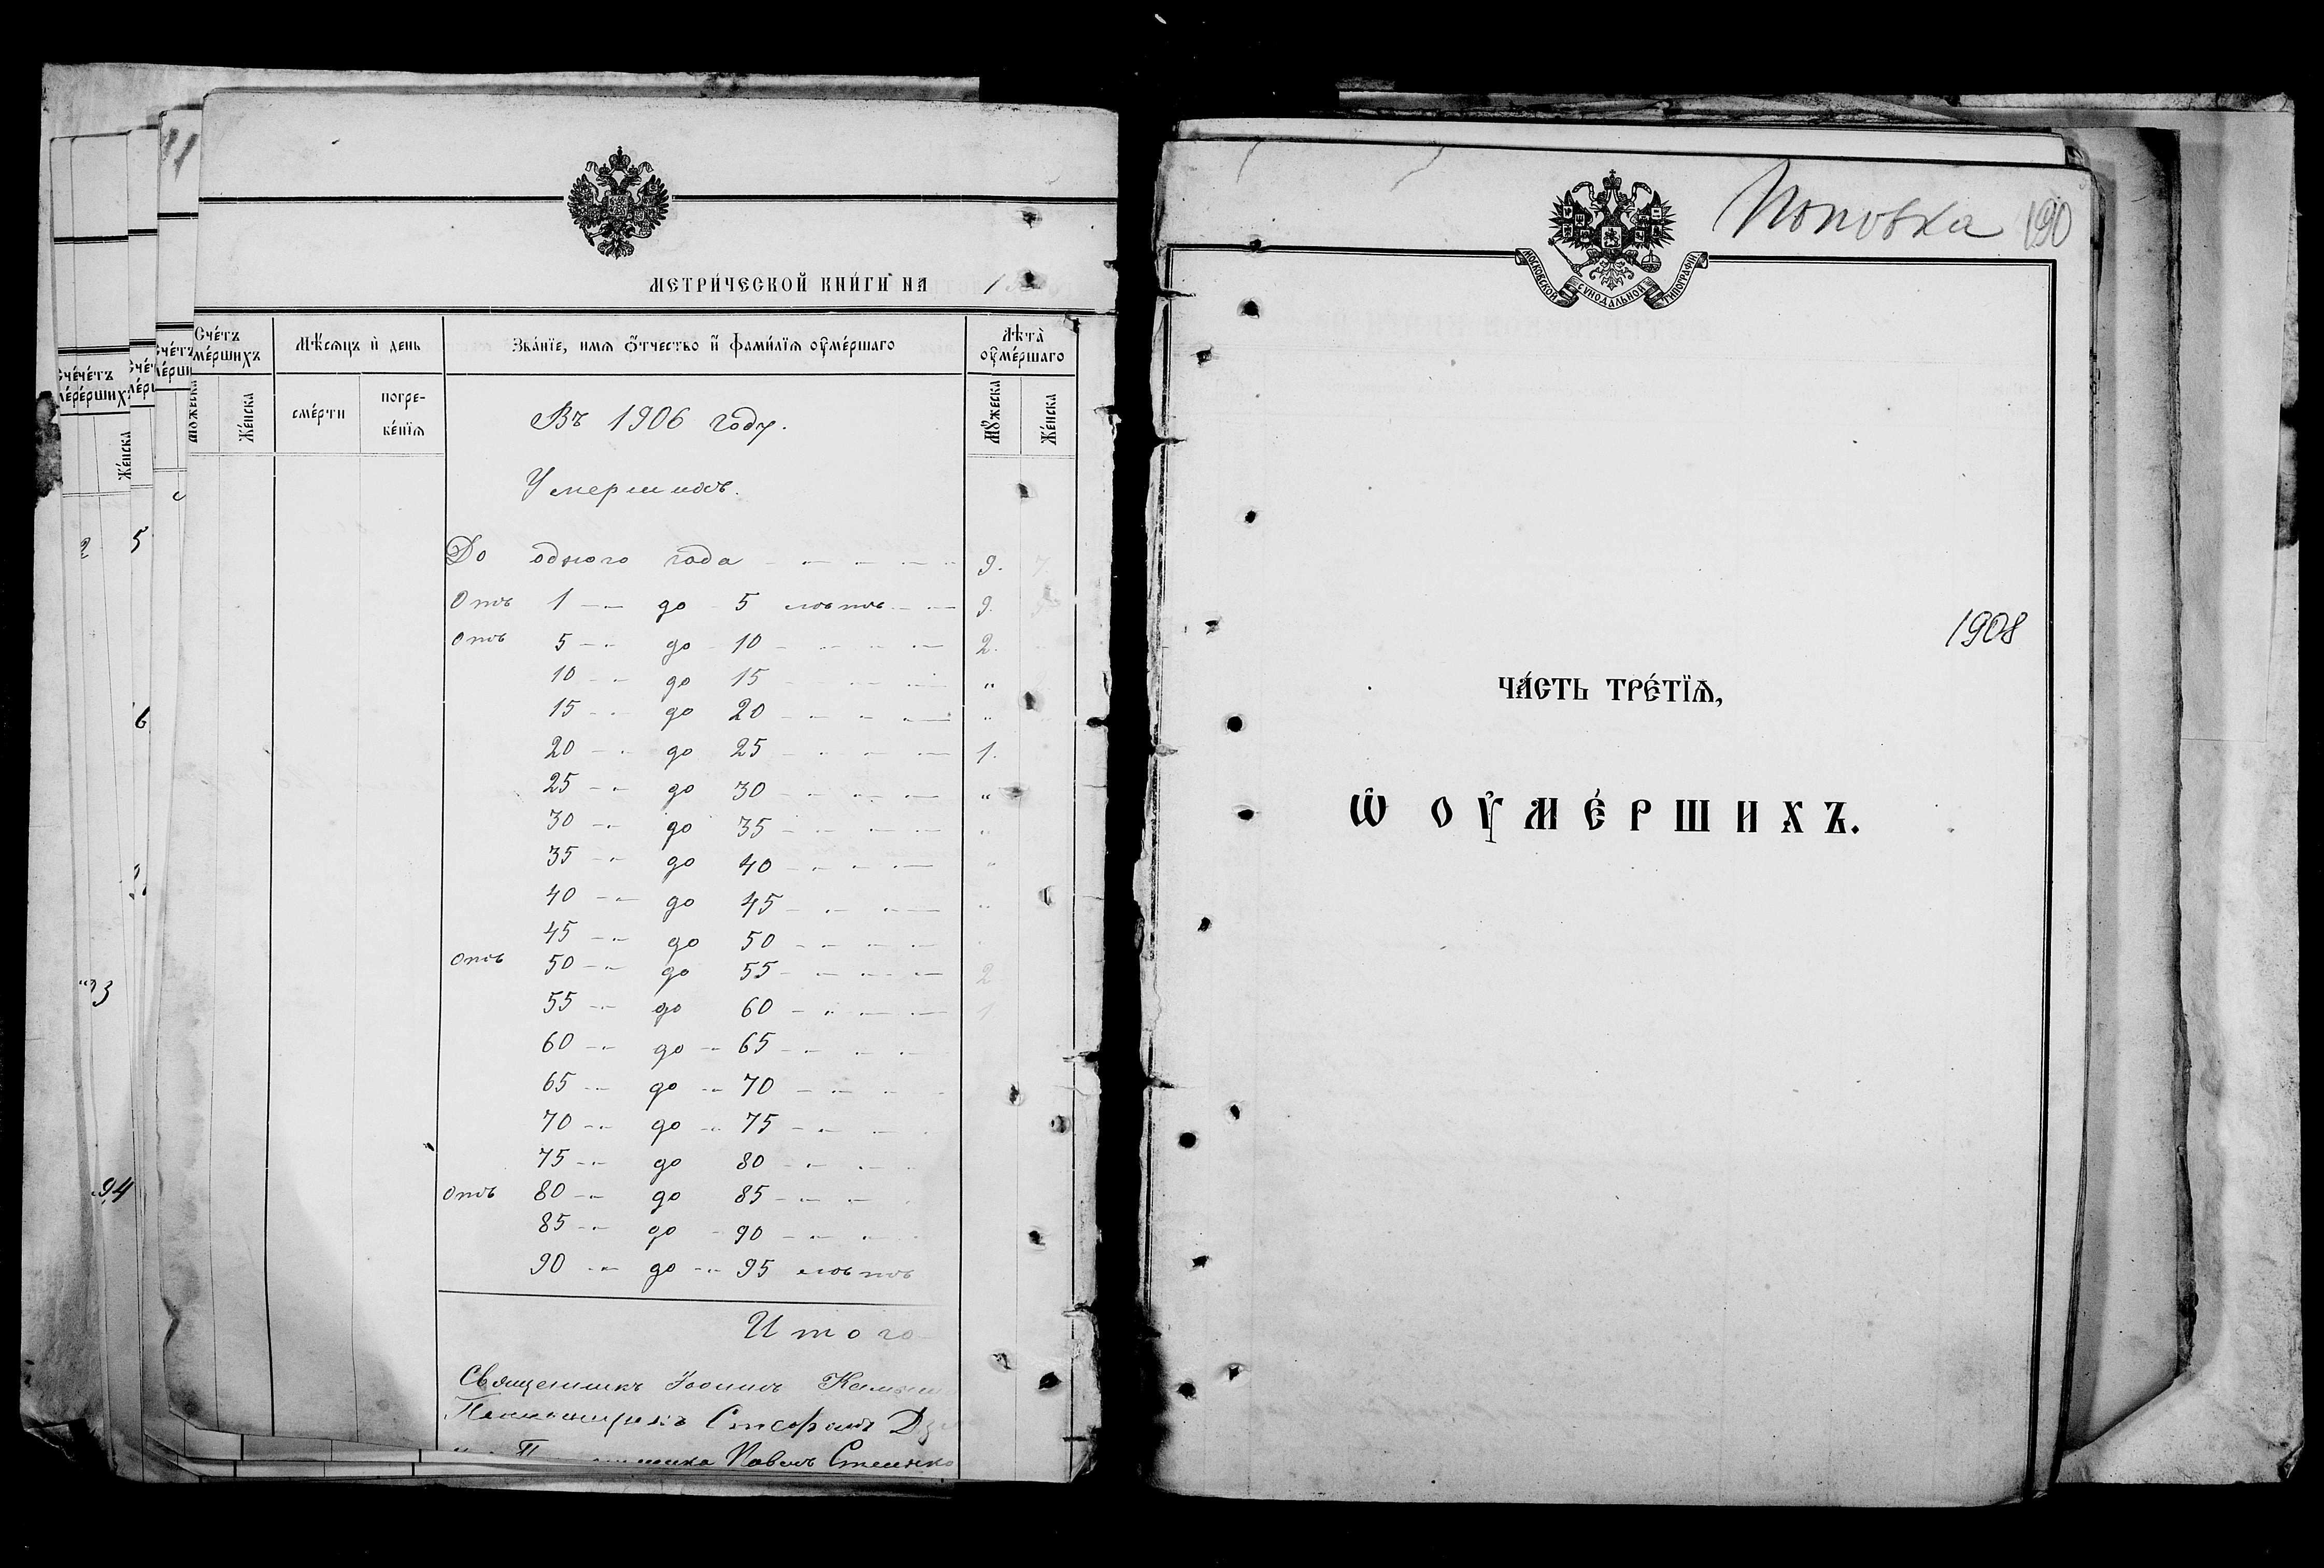 МЕТРИ́ЧЕСКОЙ КНИ́ГИ НА 1
Счéтъ
мéршихъ
Мѣ́сѧцъ и҆ дéнь
Звáнїе, и҆́мѧ ѻ҆́тчество и҆ фами́лїѧ ѹ҆мéршагѡ
Лѣ́та
ѹ҆мéршагѡ
Мꙋ́жеска
Же́нска
смéрти
погре-
бе́нїѧ
Мꙋ́жеска
Же́нска
Въ 1906 году.
Умершихъ.
До одного года 9. 7
Отъ 1 до 5 лѣтъ 9.
Отъ 5 до 10 2.
10 до 15 „
15 до 20 „
20 до 25 1.
25 до 30 „
30 до 35 „
35 до 40 „
40 до 45 „
45 до 50
Отъ 50 до 55 2
55 до 60 1
60 до 65
65 до 70
70 до 75
75 до 80
Отъ 80 до 85
85 до 90
90 до 95 лѣтъ
Итого
Священникъ Іоаннъ
Стефанъ
Павелъ
Поповка 190
МОСКОВСКОЙ СѴНОДАЛЬНОЙ ТИПОГРАФІИ
1908
ЧА́СТЬ ТРЕ́ТЇѦ,
Ѽ ОУ҆МЕ́РШИХЪ.